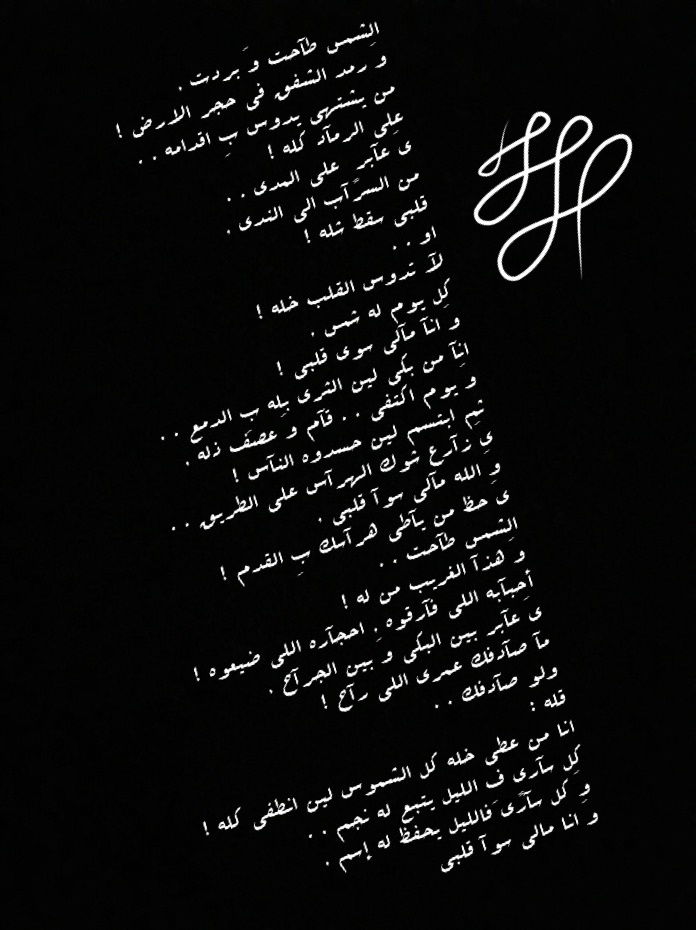 الشمس طآحت و َ بردت .
و رمد الشفق فى حجر الارض !
من يشتهى يدوس بِ اقدامه . .
على الرمآد كله !
ى عآبر على المدى . .
من السرآب الى الندى .
قلبى سقط شله !
او . .
لآ تدوس القلب خله !
كل يوم له شمس .
و انآ مآلى سوى قلبى !
انآ من بكى لين الثرى بله بِ الدمع . .
و يوم اكتفى . . قآم و عصف ذله .
ثم ابتسم لين حسدوه النآس !
ى زآرع شوك الهرآس على الطريق . .
و الله مآلى سوآ قلبى .
ى حظ من يآطى هرآسك بِ القدم !
الشمس طآحت . .
و هذآ الغريب من له !
أحبآبه اللى فآرقوه , احجآره اللى ضيعوه !
ى عآبر بين البكى و بين الجرآح .
مآ صآدفك عمرى اللى رآح !
ولو صآدفك . .
قله :
انا من عطى خله كل الشموس لين انطفى كله !
كل سآرى ف الليل يتبع له نجم . .
و كل سآرى فالليل يحفظ له إسم .
و انا مالى سوآ قلبى